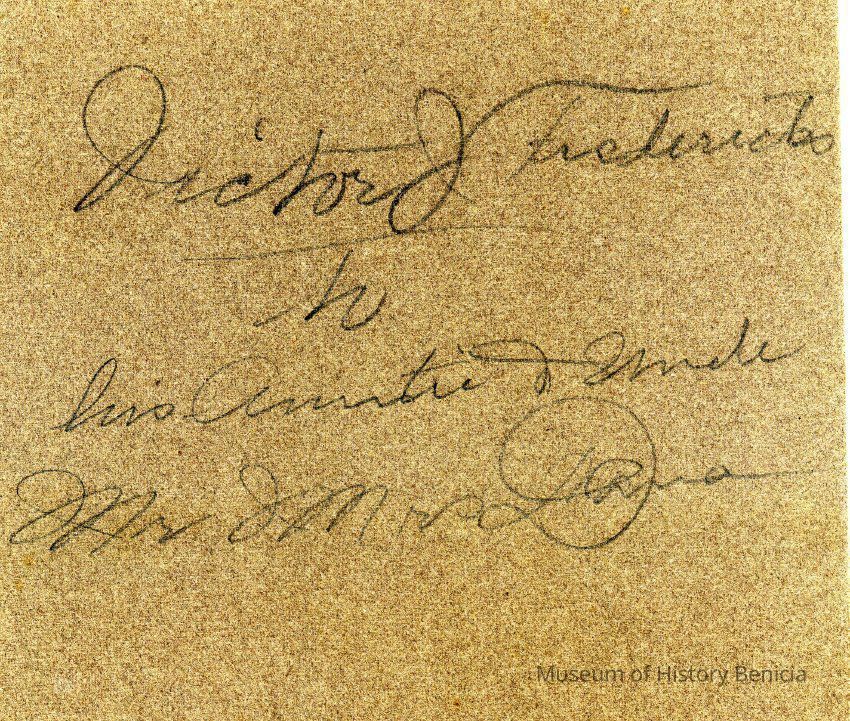 Victor J Fredericks
to
his Auntie & Uncle
Mr & Mrs
Museum of History Benicia